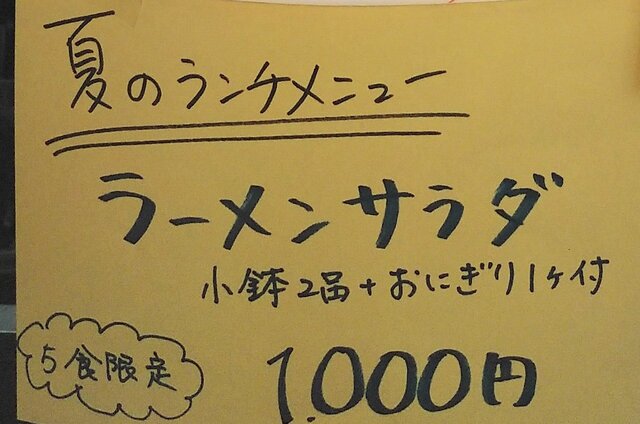 夏のランチメニュー
ラーメンサラダ
小鉢2品+おにぎり1ヶ付
5食限定
1,000円